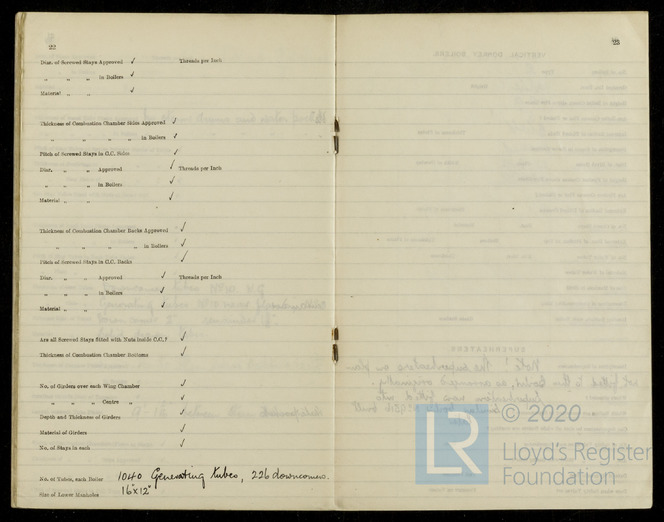 22
Diar. of Screwed Stays Approved ✓ Threads per Inch
„ „ „ in Boilers ✓
Material „ „ ✓
Thickness of Combustion Chamber Sides Approved ✓
„ „ „ „ in Boilers ✓
Pitch of Screwed Stays in C.C. Sides ✓
Diar. „ „ Approved ✓ Threads per Inch
„ „ „ in Boilers ✓
Material „ „ ✓
Thickness of Combustion Chamber Backs Approved ✓
„ „ „ „ in Boilers ✓
Pitch of Screwed Stays in C.C. Backs ✓
Diar. „ „ Approved ✓ Threads per Inch
„ „ „ in Boilers ✓
Material „ „ ✓
Are all Screwed Stays fitted with Nuts inside C.C.? ✓
Thickness of Combustion Chamber Bottoms ✓
No. of Girders over each Wing Chamber ✓
„ „ „ Centre „ ✓
Depth and Thickness of Girders ✓
Material of Girders ✓
No. of Stays in each ✓
No. of Tubes, each Boiler 1040 Generating tubes, 226 downcomers.
Size of Lower Manholes 16"x12"
© 2020
LR
Lloyd's Register
Foundation